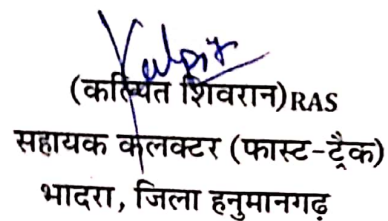 (कल्पित शिवरान) RAS
सहायक कलक्टर (फास्ट-ट्रैक)
भादरा, जिला हनुमानगढ़